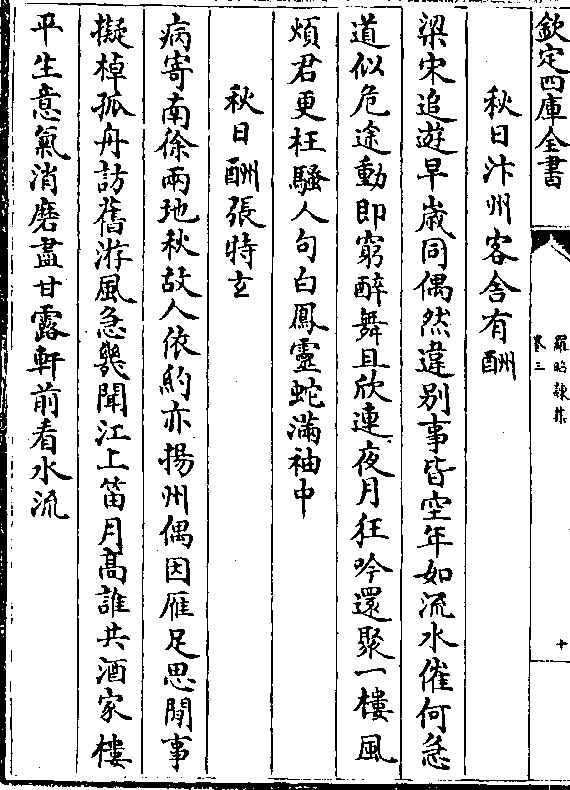 欽定四庫全書
羅昭諫集
卷三
十
秋日汴州客舍有酬
梁宋追遊早歲同偶然違别事皆空年如流水催何急
道似危途動即窮醉舞且欣連夜月狂吟還聚一樓風
煩君更枉騷人句白鳳靈蛇滿袖中
秋日酬張特玄
病寄南徐兩地秋故人依約亦揚州偶因雁足思閒事
擬棹孤舟訪舊游風急幾聞江上笛月高誰共酒家樓
平生意氣消磨盡甘露軒前看水流